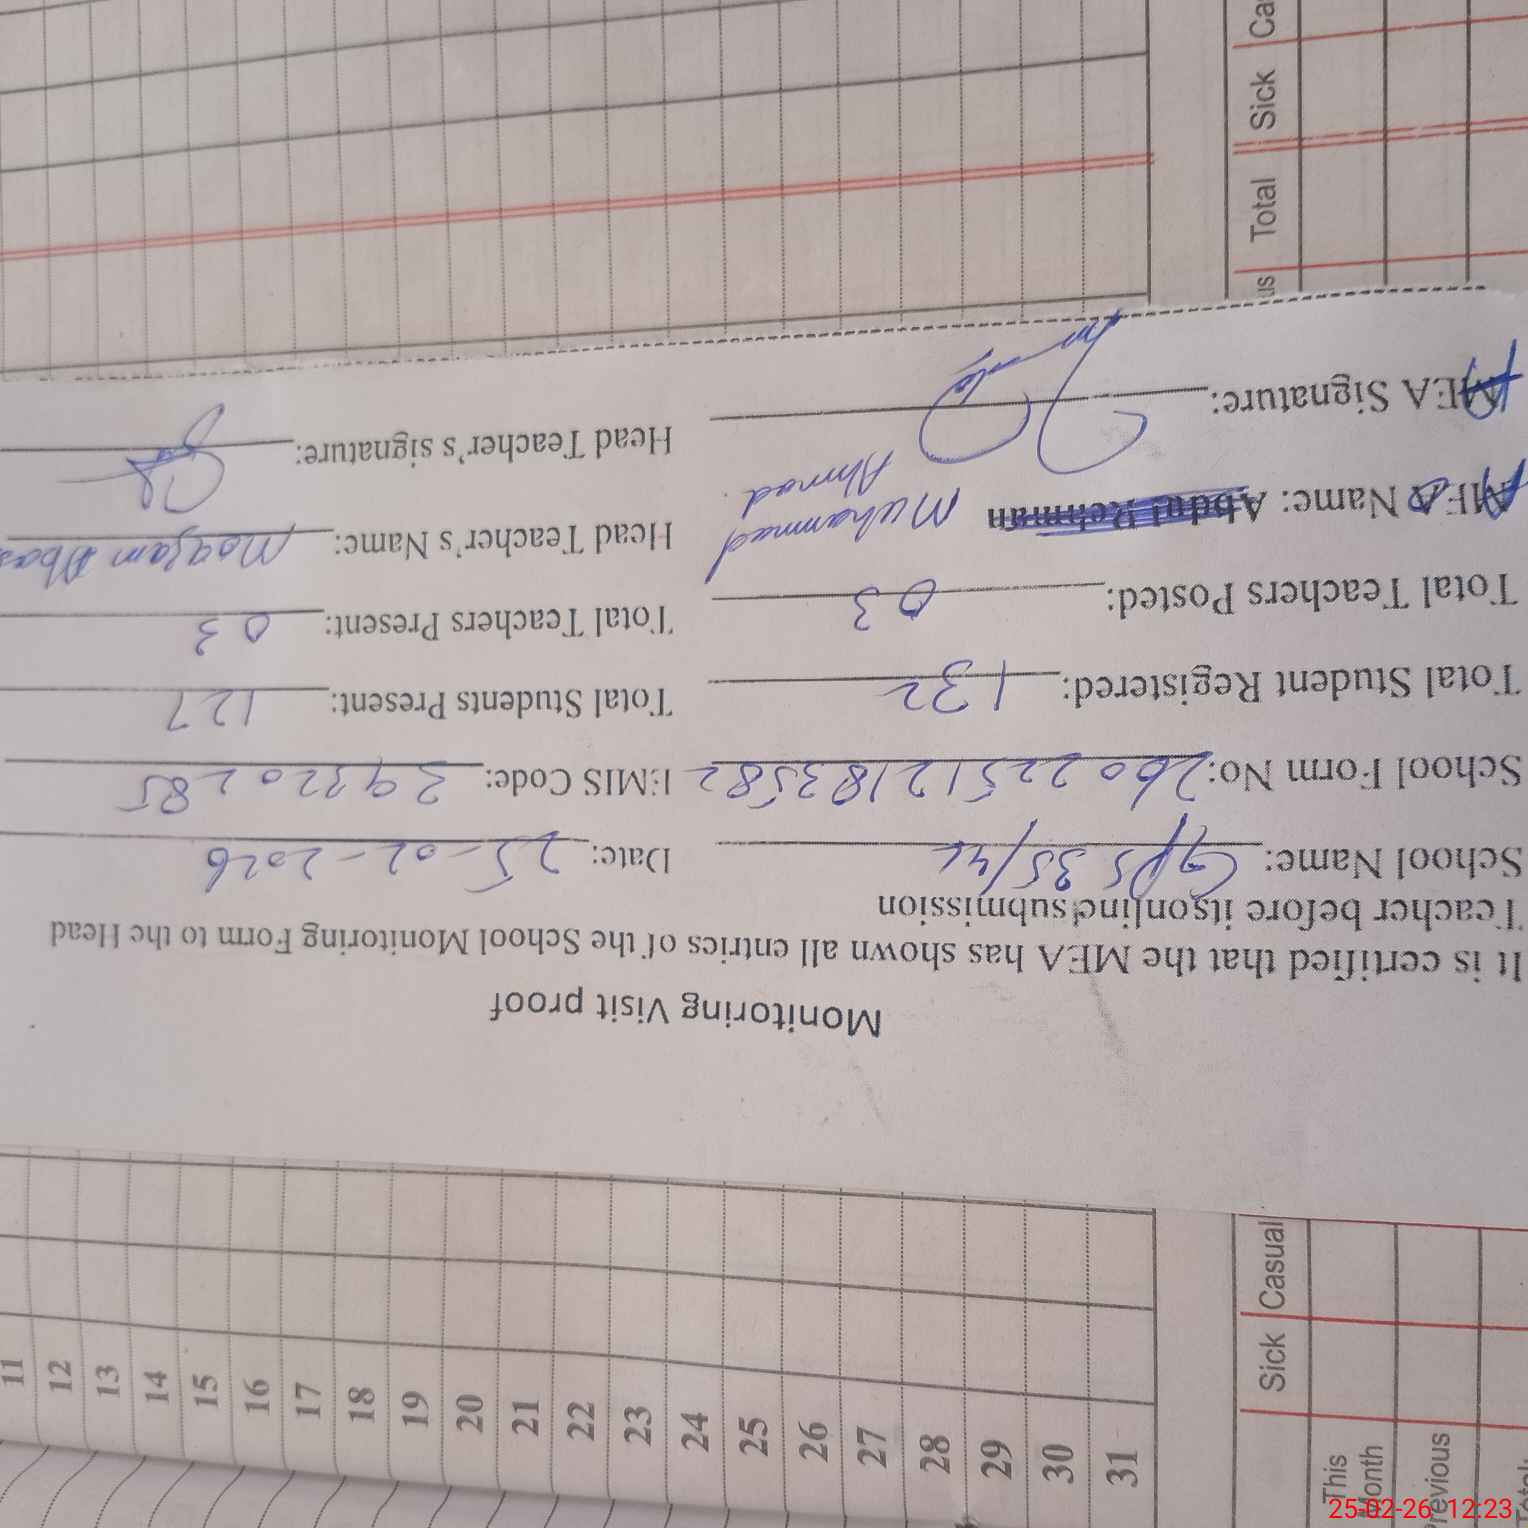 Monitoring Visit proof
It is certified that the MEA has shown all entries of the School Monitoring Form to the Head
Teacher before its online submission
School Name: GPS 35/4L Date: 25-02-2026
School Form No: 26022512183582 EMIS Code: 39320285
Total Student Registered: 132 Total Students Present: 127
Total Teachers Posted: 03 Total Teachers Present: 03
Name: Abdul Rehman Muhammad Ahmad. Head Teacher's Name: Abbas
EA Signature: Head Teacher's signature:
us Total Sick Ca
Sick Casual
This Month
Previous
Total
11 12 13 14 15 16 17 18 19 20 21 22 23 24 25 26 27 28 29 30 31
25-02-26 12:23